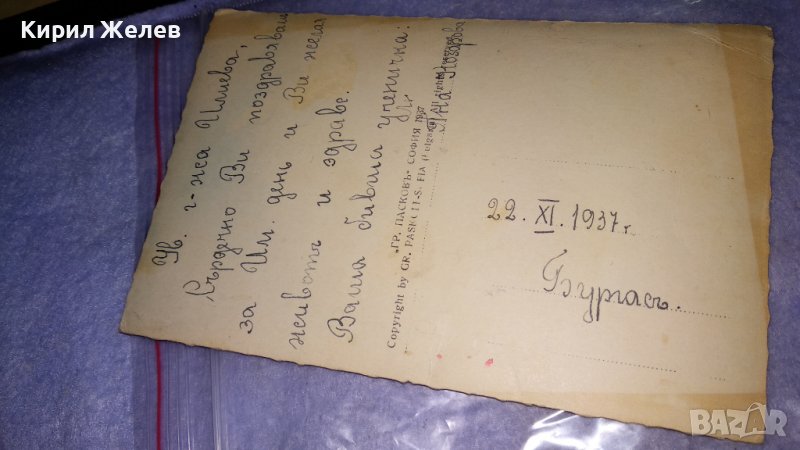 Кирил Желев
Ув. г-жа Илиева,
Сърдечно Ви поздравявам
за Им. день и Ви желая
животъ и здраве.
Ваша бивша ученичка:
"ГР. ПАСКОВЪ" СОФИЯ 1937
Copyright by GR. PASKOFF-S. FIA
22. XI. 1937 г.
Бургасъ.
BAZAR